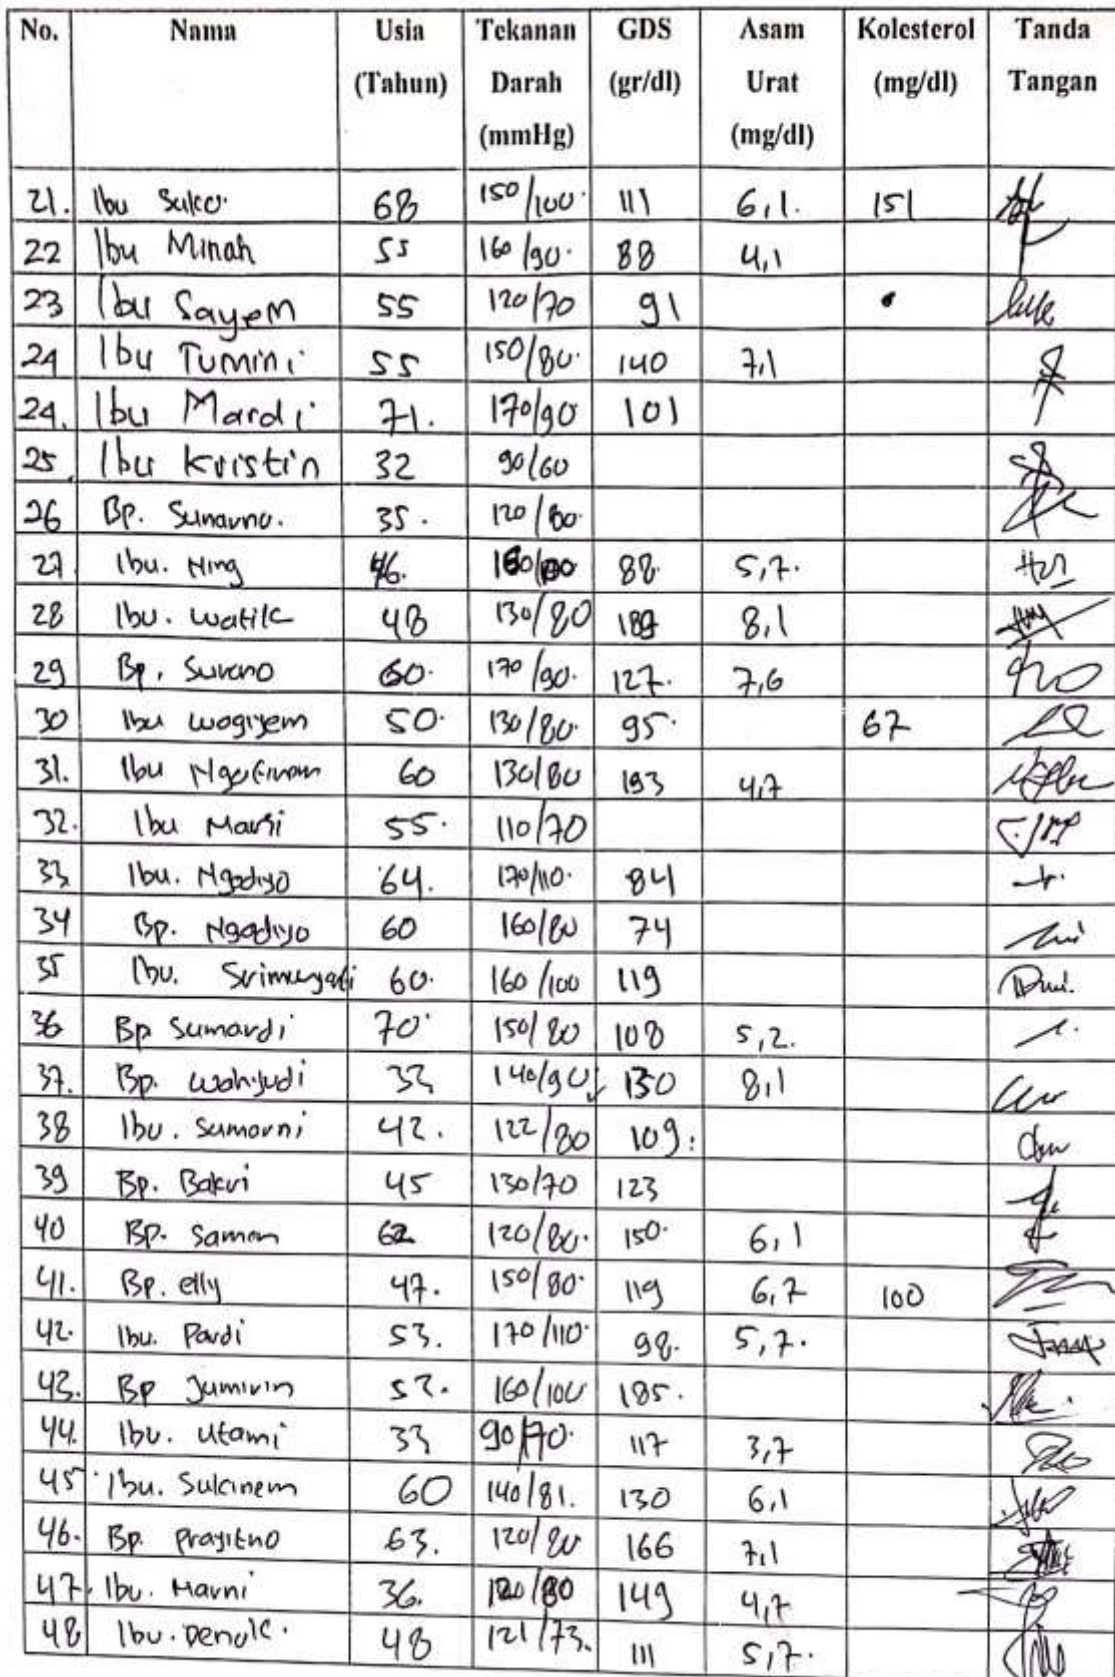 No. Nama Usia (Tahun) Tekanan Darah (mmHg) GDS (gr/dl) Asam Urat (mg/dl) Kolesterol (mg/dl) Tanda Tangan
21. Ibu Suko 68 150/100 111 6,1. 151
22 Ibu Minah 55 160/90 88 4,1
23 Ibu Sayem 55 120/70 91
24 Ibu Tumini 55 150/80 140 7,1
24. Ibu Mardi 71. 170/90 101
25 Ibu Kristin 32 90/60
26 Bp. Sunarno. 35. 120/80
27 Ibu. Ning 46. 88 5,7.
28 Ibu. Watik 48 130/80 189 8,1
29 Bp. Surono 60. 170/90. 127. 7,6
30 Ibu Wagiyem 50. 130/80. 95. 67
31. Ibu 60 130/80 193 4,7
32. Ibu Marsi 55. 110/70
33 Ibu. Ngadiyo 64. 170/110. 84
34 Bp. Ngadiyo 60 160/80 74
35 Ibu. Srimulyati 60. 160/100 119
36 Bp Sumardi 70 150/80 108 5,2.
37. Bp. Wahyudi 33 140/90 130 8,1
38 Ibu. Sumarni 42. 122/80 109.
39 Bp. Bakri 45 130/70 123
40 Bp. Saman 62 120/80. 150. 6,1
41. Bp. elly 47. 150/80. 119 6,7 100
42. Ibu. Pardi 53. 170/110. 98. 5,7.
43. Bp Jumirin 52. 160/100 185.
44. Ibu. Utami 33 90/70. 117 3,7
45 Ibu. Sukinem 60 140/81. 130 6,1
46. Bp. Prayitno 63. 120/80 166 7,1
47. Ibu. Marni 36. 120/80 149 4,7
48 Ibu. Denok. 48 121/73. 111 5,7.